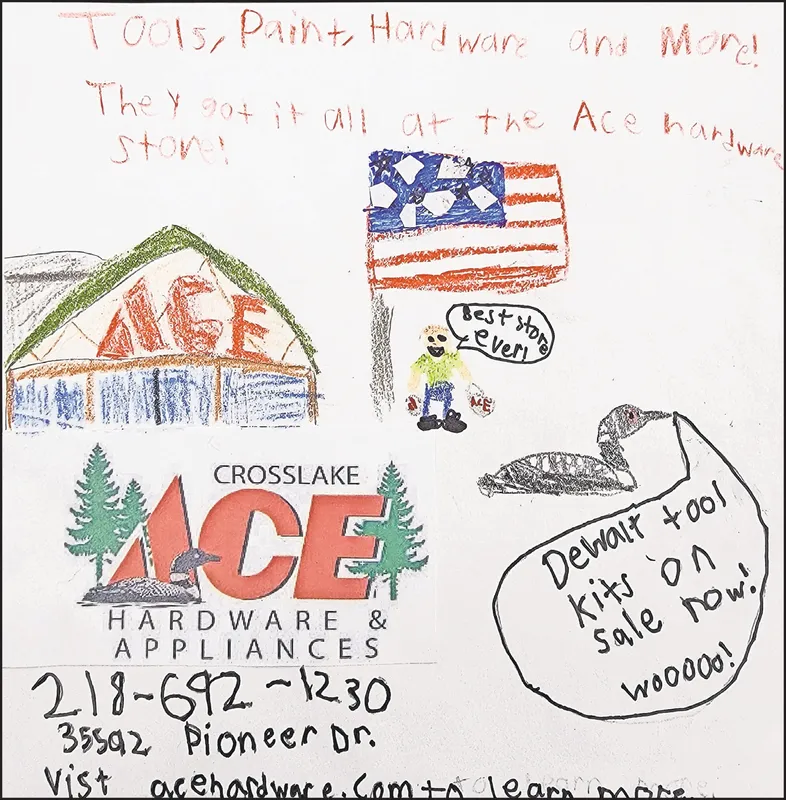 Tools, Paint, Hardware and More!
They got it all at the Ace hardware
store!
ACE
Best store
ever!
ACE
CROSSLAKE
ACE
HARDWARE &
APPLIANCES
Dewalt tool
kits on
sale now!
wooooo!
218-692-1230
35592 Pioneer Dr.
Vist acehardware.com to learn more